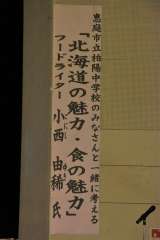 恵庭市立柏陽中学校のみなさんと一緒に考える
「北海道の魅力・食の魅力」
フードライター 小西 由稀 氏
こにし ゆき